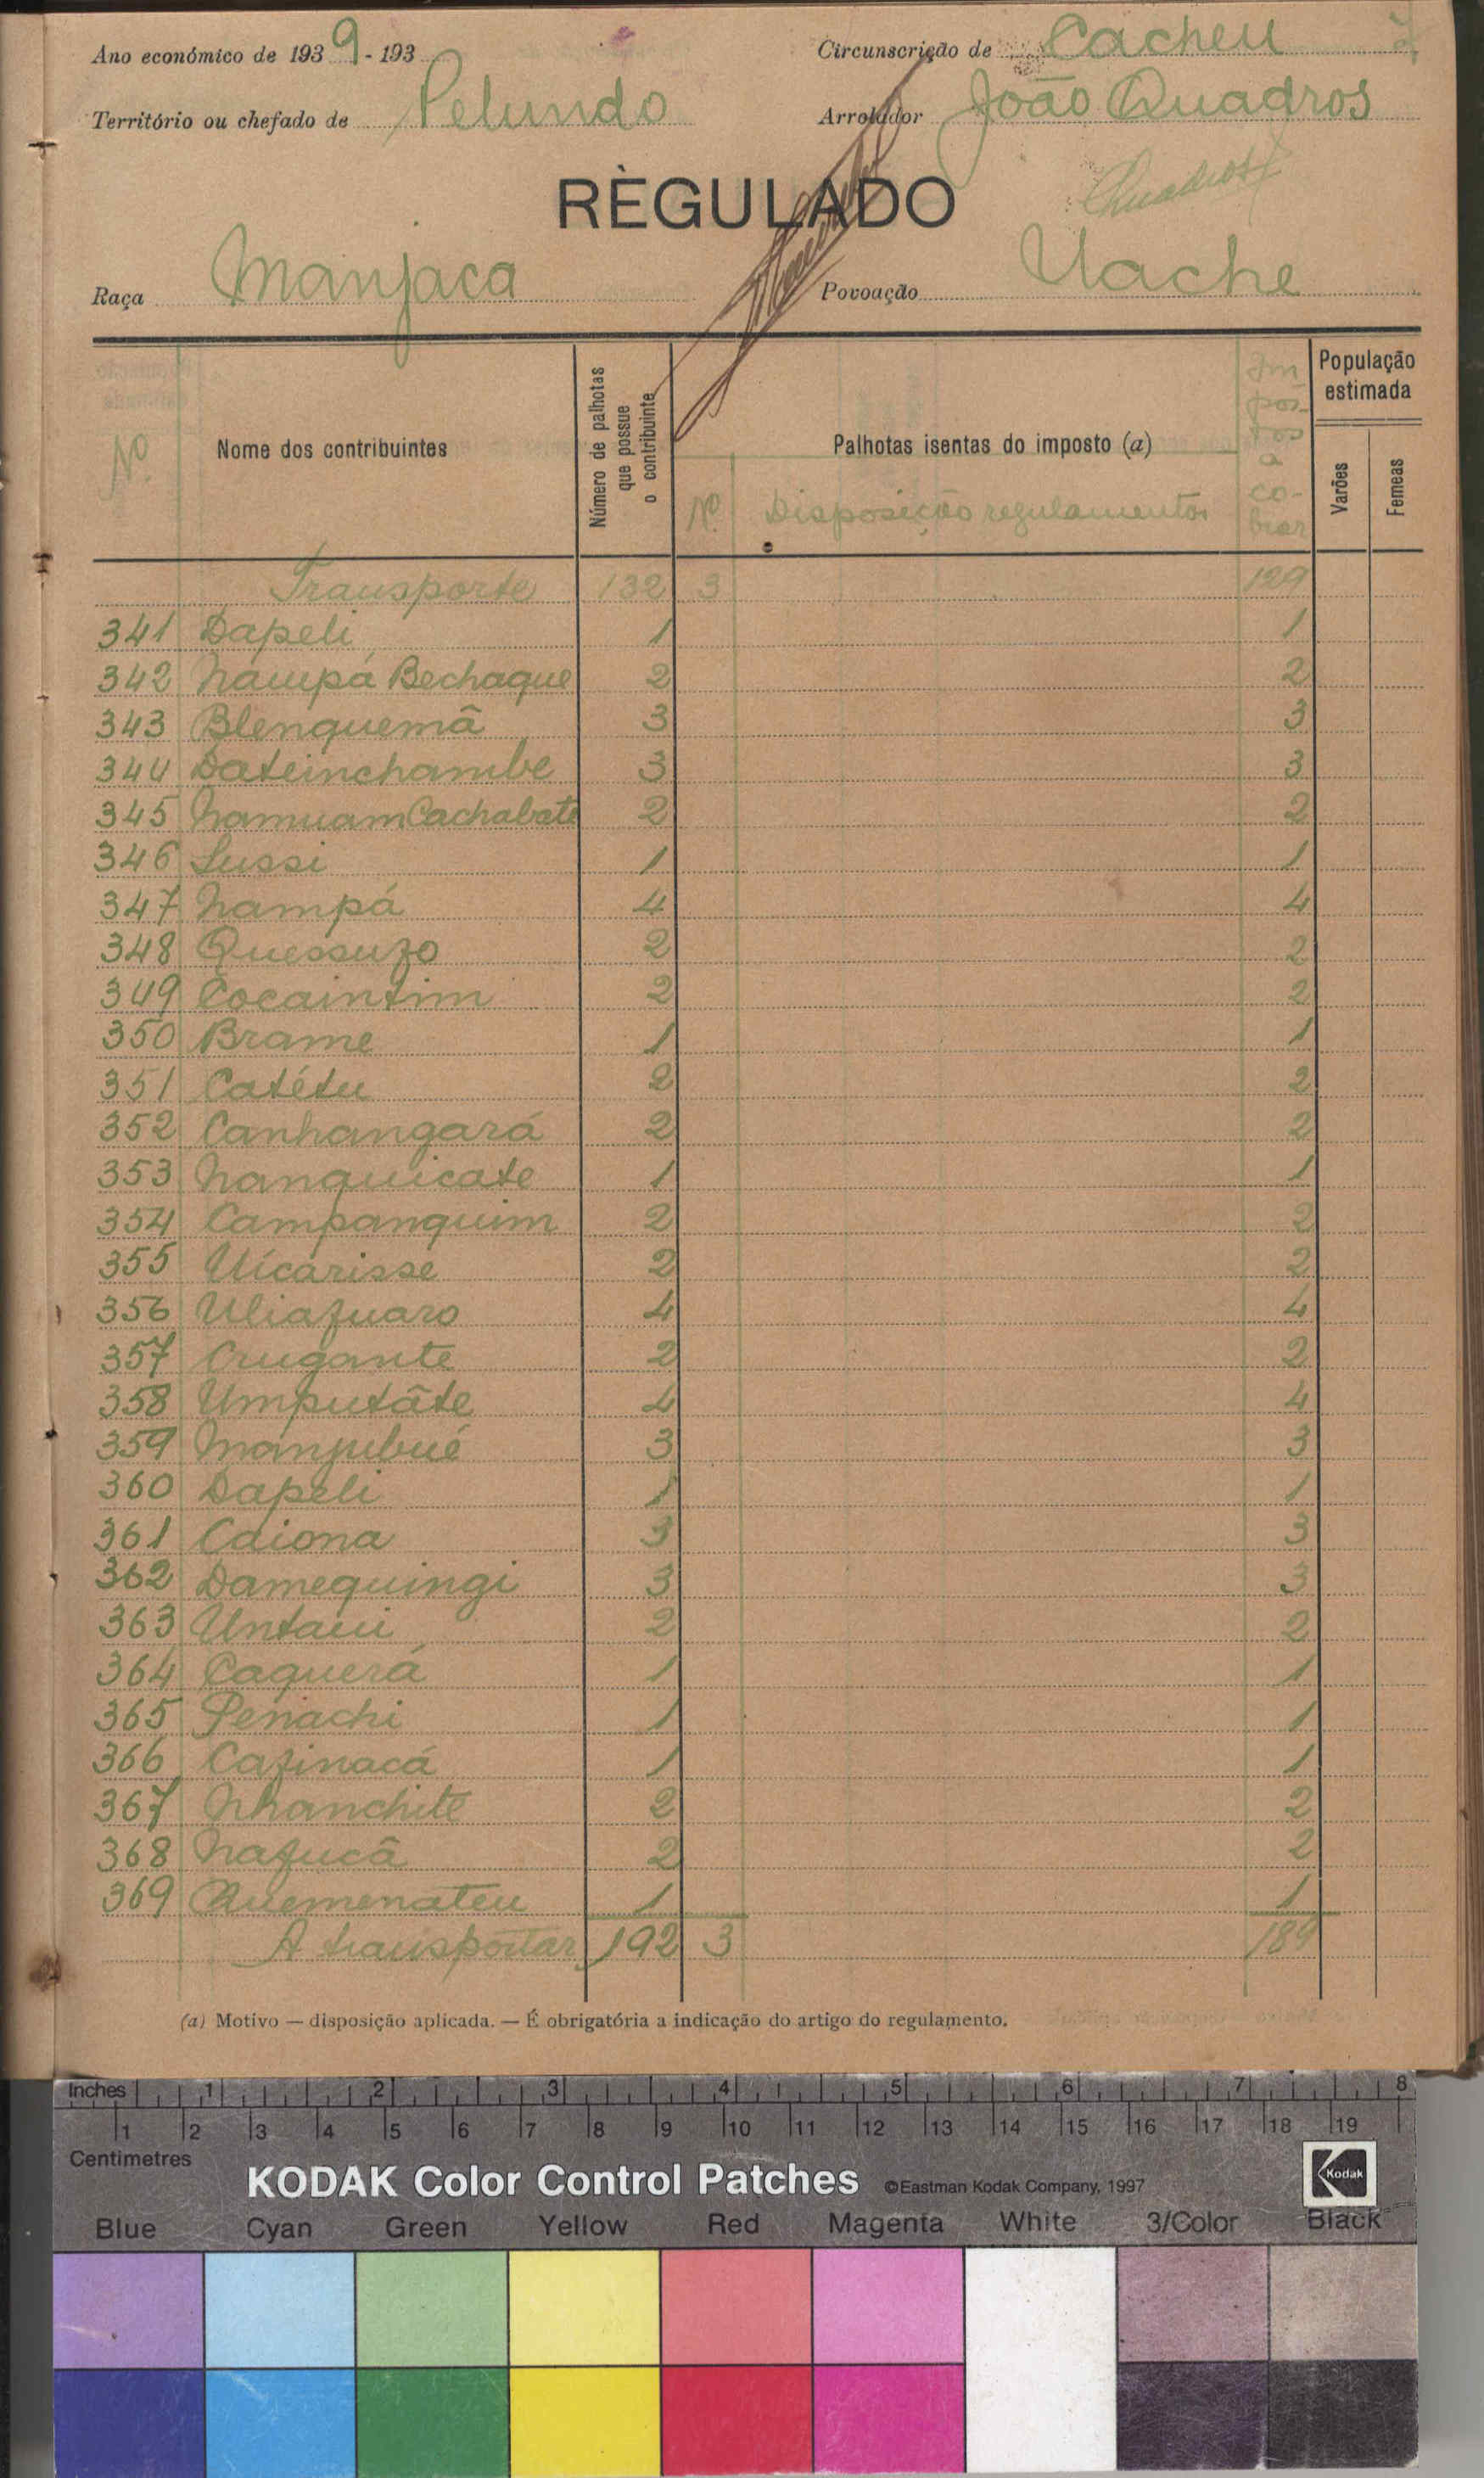 Ano económico de 1939-193
Circunscrição de Cacheu
Território ou chefado de Pelundo
Arrolador João Quadros
Quadros
RÈGULADO
Raça Manjaca
Povoação Uache
Nº Nome dos contribuintes Número de palhotas que possue o contribuinte Palhotas isentas do imposto (a) Impostos a cobrar População estimada
Nº Disposição regulamentos Varões Femeas
Transporte 132 3 129
341 Dapeli 1 1
342 Nampá Bechaque 2 2
343 Blenquemã 3 3
344 Dateinchambe 3 3
345 Namuam Cachabate 2 2
346 Sussi 1 1
347 Nampá 4 4
348 Quessuzo 2 2
349 Cocaintim 2 2
350 Brame 1 1
351 Catétu 2 2
352 Canhangará 2 2
353 Nanquicate 1 1
354 Campanquim 2 2
355 Uícarisse 2 2
356 Uliafuaro 4 4
357 Crugante 2 2
358 Umputâte 4 4
359 Manjubué 3 3
360 Dapeli 1 1
361 Caiona 3 3
362 Damequingi 3 3
363 Untaui 2 2
364 Caquerá 1 1
365 Penachi 1 1
366 Cafinacá 1 1
367 Nhanchite 2 2
368 Nafucã 2 2
369 Quemenateu 1 1
A transportar 192 3 189
(a) Motivo — disposição aplicada. — É obrigatória a indicação do artigo do regulamento.
Inches 1 2 3 4 5 6 7 8
1 2 3 4 5 6 7 8 9 10 11 12 13 14 15 16 17 18 19
Centimetres
KODAK Color Control Patches ©Eastman Kodak Company, 1997 Kodak
Blue Cyan Green Yellow Red Magenta White 3/Color Black